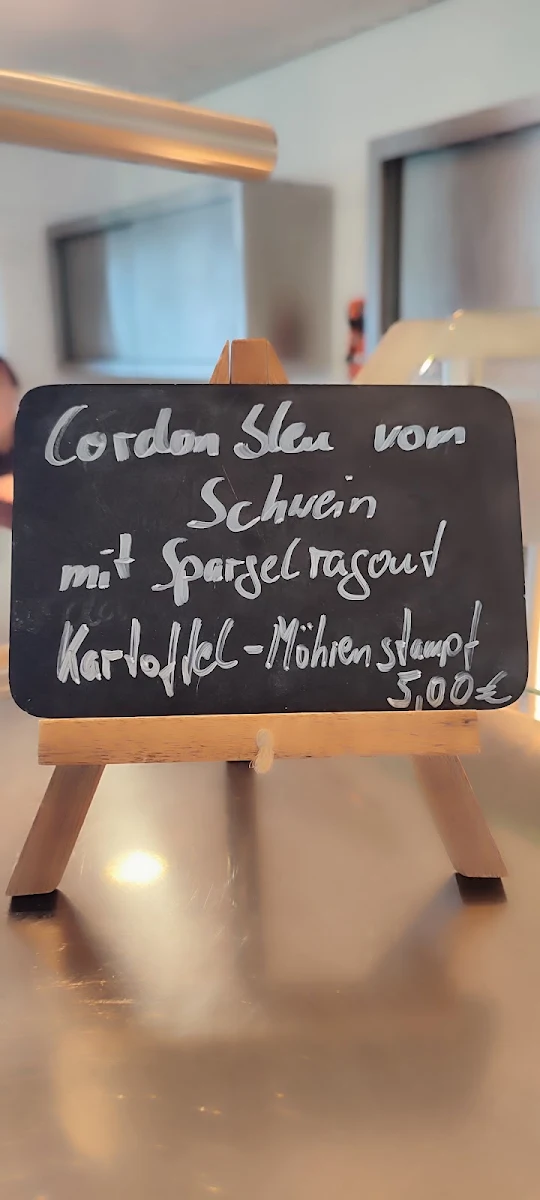 Cordon Bleu vom
Schwein
mit Spargelragout
Kartoffel-Möhrenstampf
5,00€